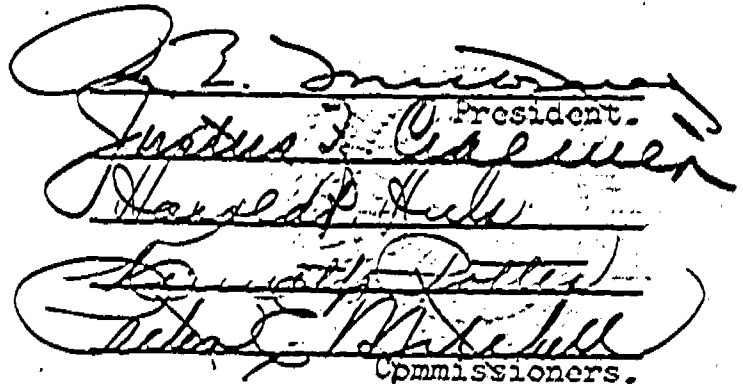 President.
Justus F. Craemer
Harold P. Huls
Kenneth Potter
Peter E. Mitchell
Cpmmissioners.